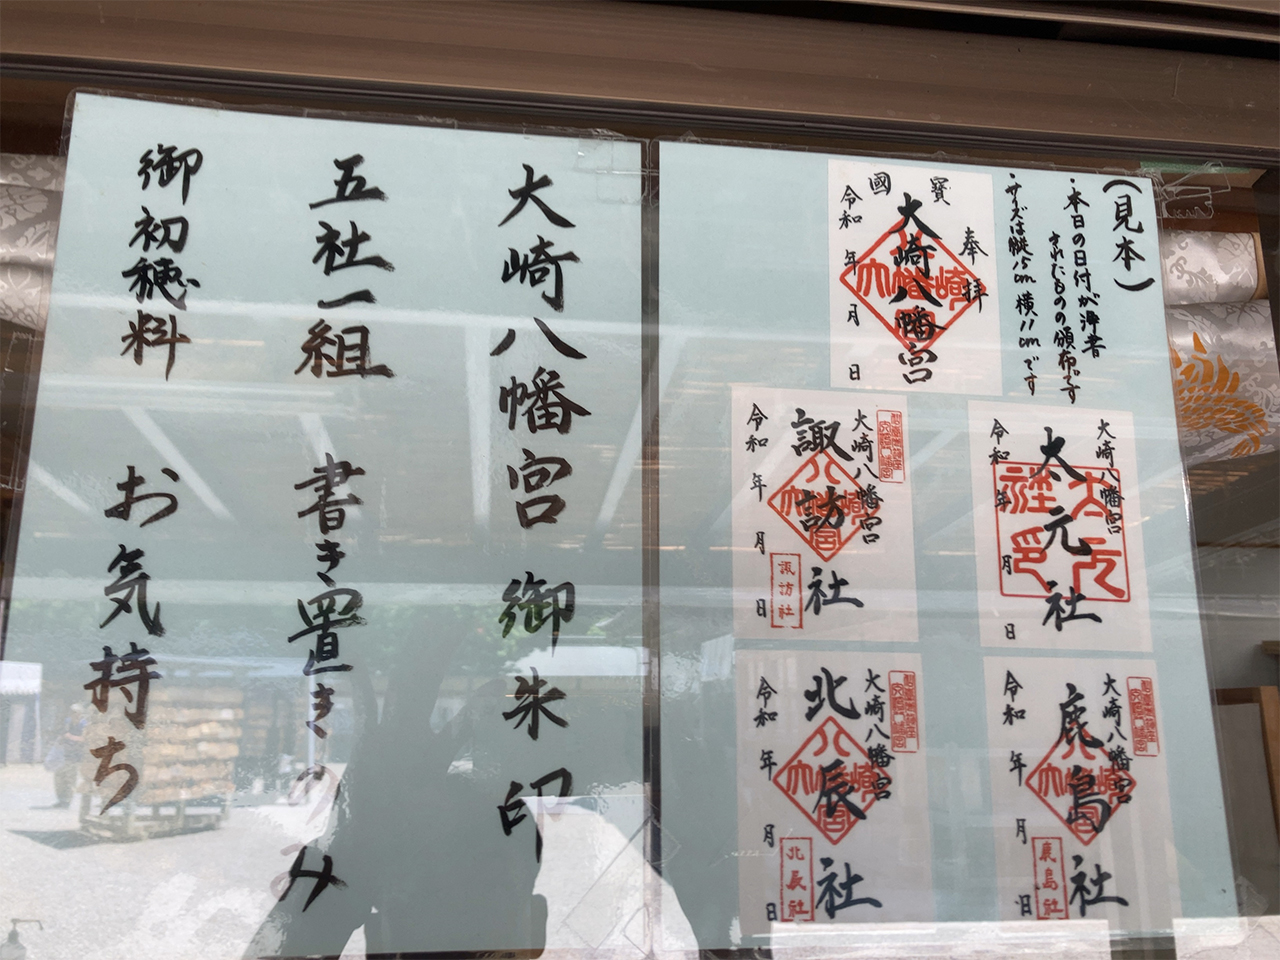 大崎八幡宮 御朱印
五社一組 書き置きのみ
御初穂料 お気持ち
(見本)
・本日の日付が浄書
されたものの頒布です
・サイズは縦15cm 横11cmです
奉拝
國寳
大崎八幡宮
令和 年 月 日
大崎八幡宮
大元社
令和 年 月 日
大崎八幡宮
諏訪社
令和 年 月 日
諏訪社
大崎八幡宮
鹿島社
令和 年 月 日
鹿島社
大崎八幡宮
北辰社
令和 年 月 日
北辰社